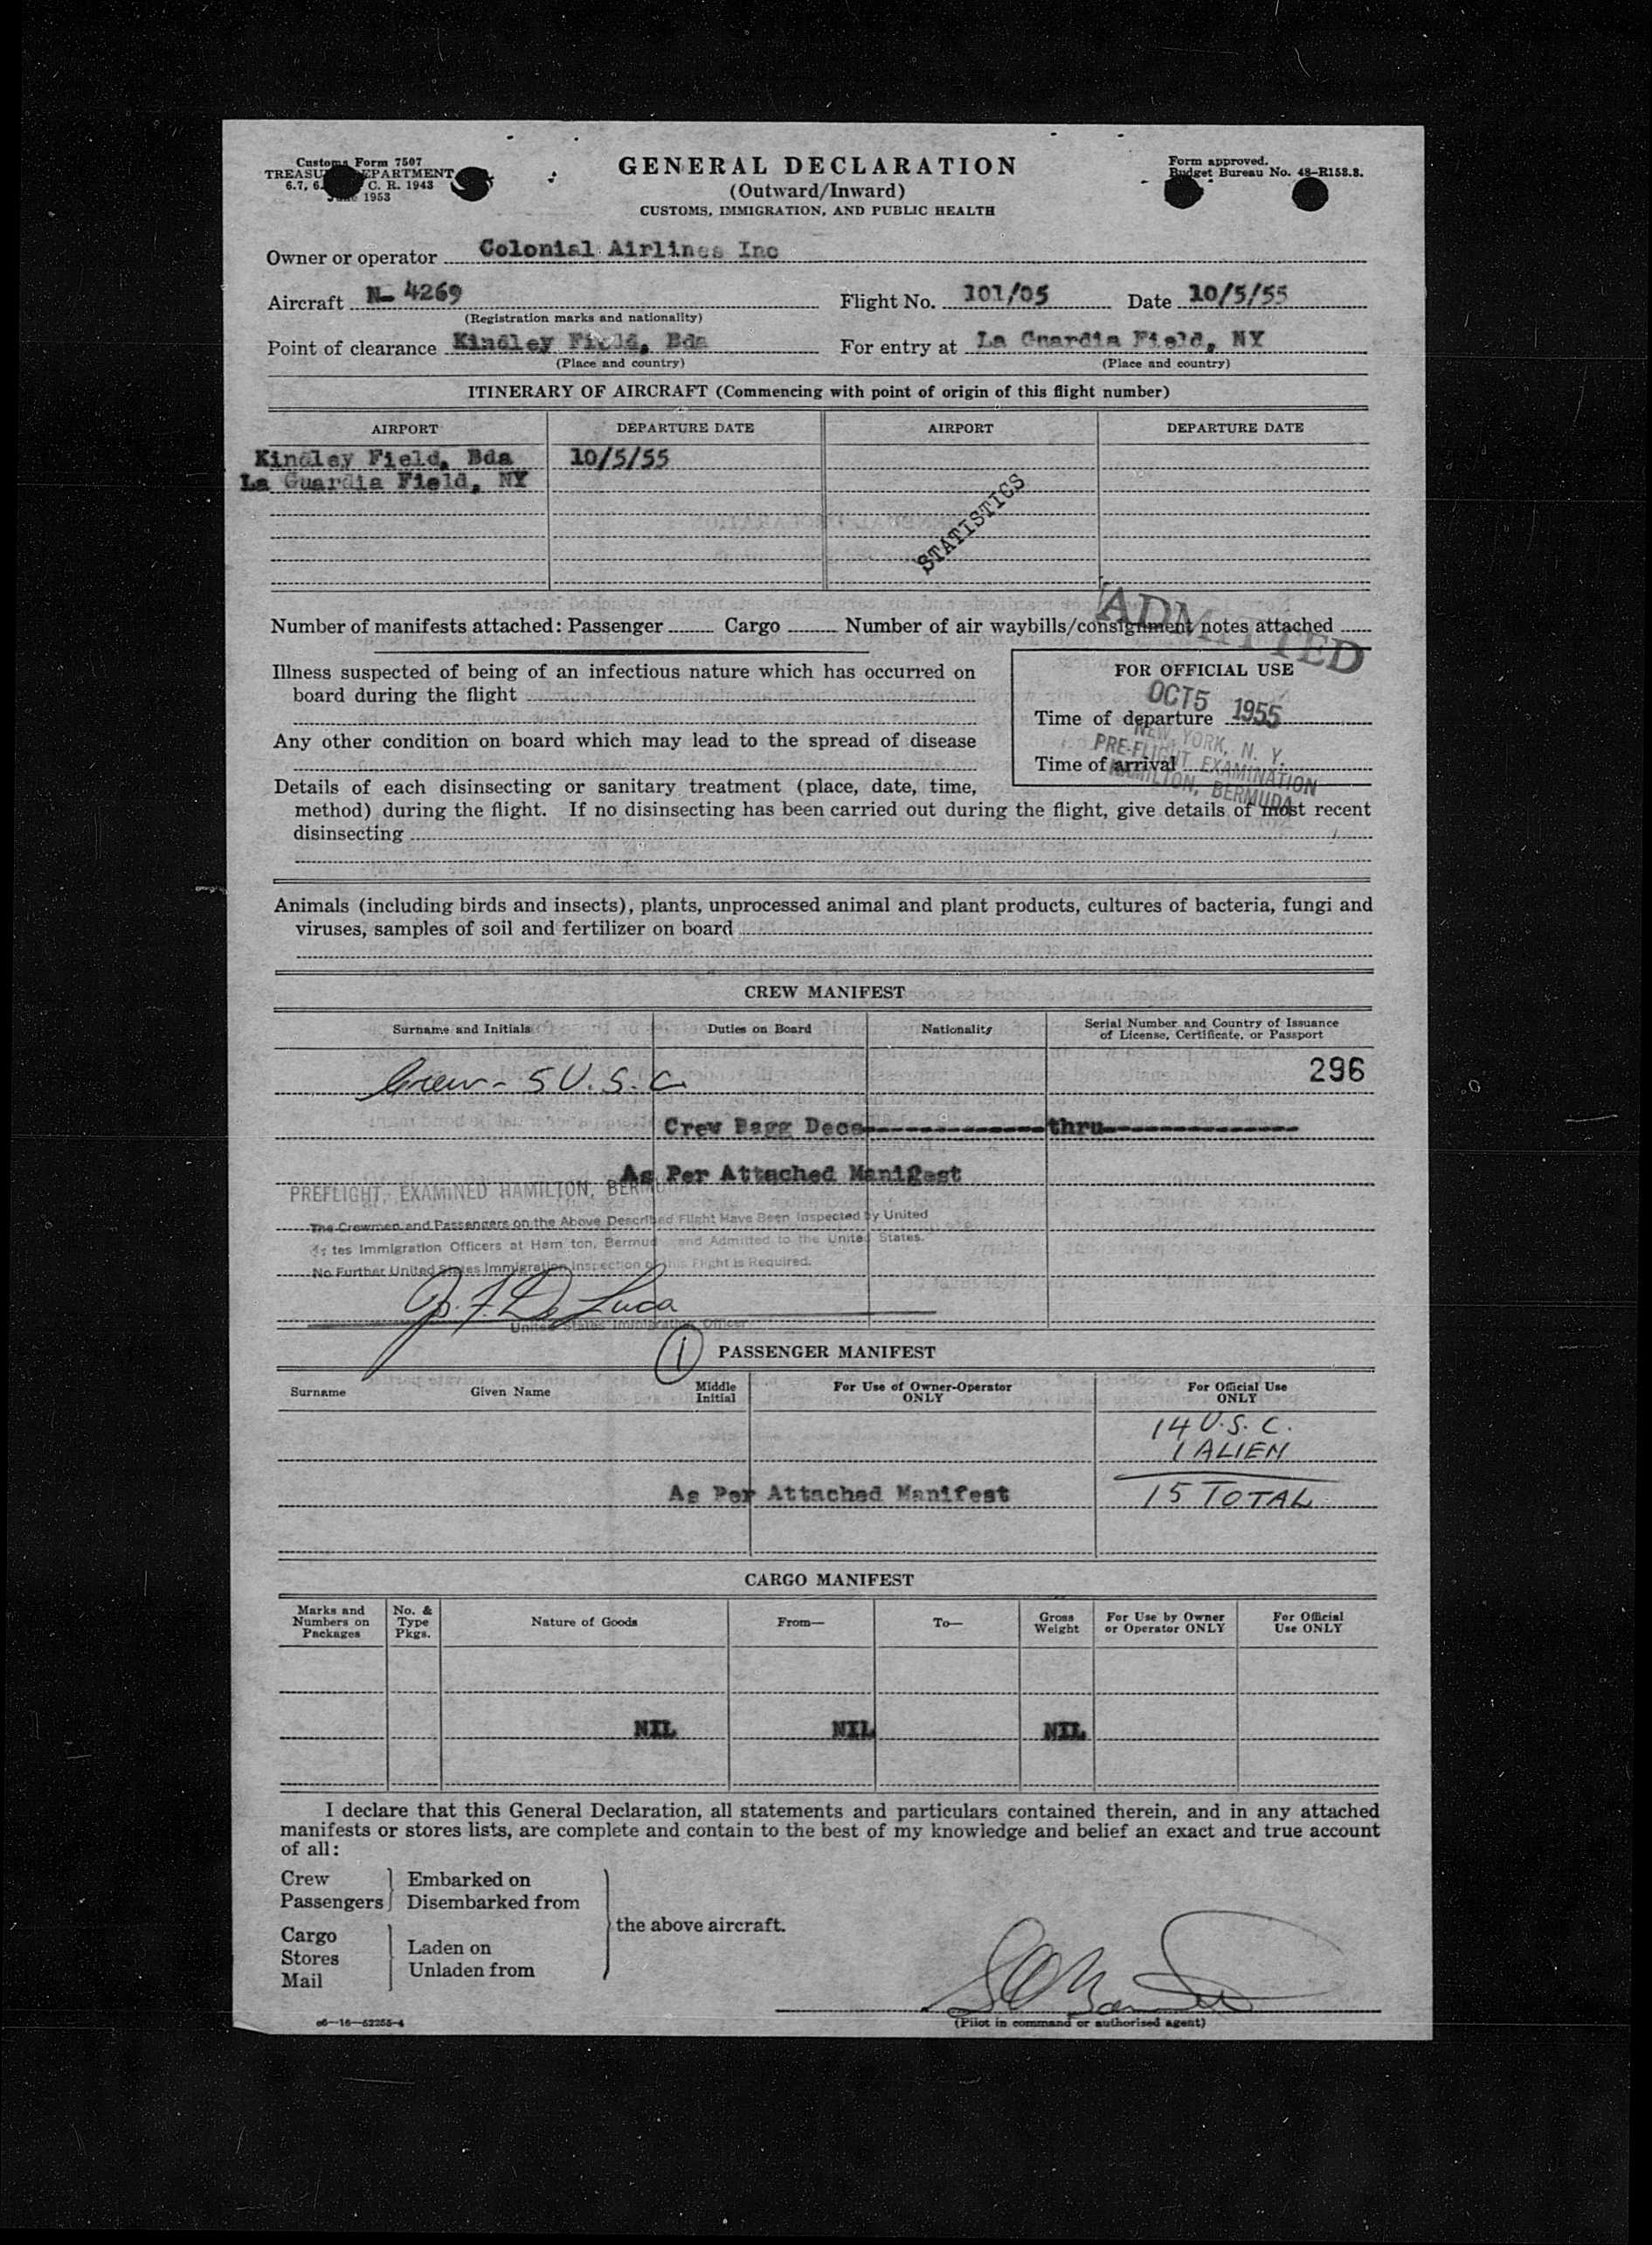 Customs Form 7507
TREASU EPARTMENT
6.7, 6. C. R. 1943
June 1953
GENERAL DECLARATION
(Outward/Inward)
CUSTOMS, IMMIGRATION, AND PUBLIC HEALTH
Form approved.
Budget Bureau No. 48-R158.8.
Owner or operator Colonial Airlines Inc
Aircraft N- 4269 Flight No. 101/05 Date 10/5/55
(Registration marks and nationality)
Point of clearance Kindley Field, Bda For entry at La Guardia Field, NY
(Place and country) (Place and country)
ITINERARY OF AIRCRAFT (Commencing with point of origin of this flight number)
AIRPORT DEPARTURE DATE AIRPORT DEPARTURE DATE
Kindley Field, Bda 10/5/55
La Guardia Field, NY
STATISTICS
ADMITTED
Number of manifests attached: Passenger Cargo Number of air waybills/consignment notes attached
Illness suspected of being of an infectious nature which has occurred on
board during the flight
FOR OFFICIAL USE
OCT 5 1955
Time of departure
NEW YORK, N. Y.
PRE-FLIGHT EXAMINATION
Time of arrival
HAMILTON, BERMUDA
Any other condition on board which may lead to the spread of disease
Details of each disinsecting or sanitary treatment (place, date, time,
method) during the flight. If no disinsecting has been carried out during the flight, give details of most recent
disinsecting
Animals (including birds and insects), plants, unprocessed animal and plant products, cultures of bacteria, fungi and
viruses, samples of soil and fertilizer on board
CREW MANIFEST
Surname and Initials Duties on Board Nationality Serial Number and Country of Issuance
of License, Certificate, or Passport
Crew - 5 U. S. C. 296
Crew Bagg Decs thru
As Per Attached Manifest
PREFLIGHT, EXAMINED HAMILTON, BERMU
The Crewmen and Passengers on the Above Described Flight Have Been Inspected by United
States Immigration Officers at Ham ton, Bermud and Admitted to the United States.
No Further United States Immigration Inspection of this Flight is Required.
J. F. De Luca
United States Immigration Officer
1 PASSENGER MANIFEST
Surname Given Name Middle
Initial For Use of Owner-Operator
ONLY For Official Use
ONLY
14 U. S. C.
1 ALIEN
As Per Attached Manifest 15 TOTAL
CARGO MANIFEST
Marks and
Numbers on
Packages No. &
Type
Pkgs. Nature of Goods From— To— Gross
Weight For Use by Owner
or Operator ONLY For Official
Use ONLY
NIL NIL NIL
I declare that this General Declaration, all statements and particulars contained therein, and in any attached
manifests or stores lists, are complete and contain to the best of my knowledge and belief an exact and true account
of all:
Crew Embarked on
Passengers Disembarked from
the above aircraft.
Cargo
Stores Laden on
Mail Unladen from
(Pilot in command or authorised agent)
c6—16—52255-4